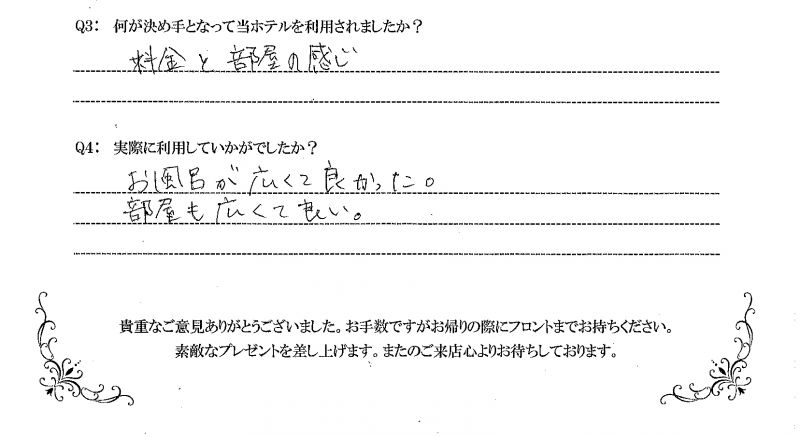 Q3: 何が決め手となって当ホテルを利用されましたか？
料金と部屋の感じ
Q4: 実際に利用していかがでしたか？
お風呂が広くて良かった。
部屋も広くて良い。
貴重なご意見ありがとうございました。お手数ですがお帰りの際にフロントまでお持ちください。
素敵なプレゼントを差し上げます。またのご来店心よりお待ちしております。